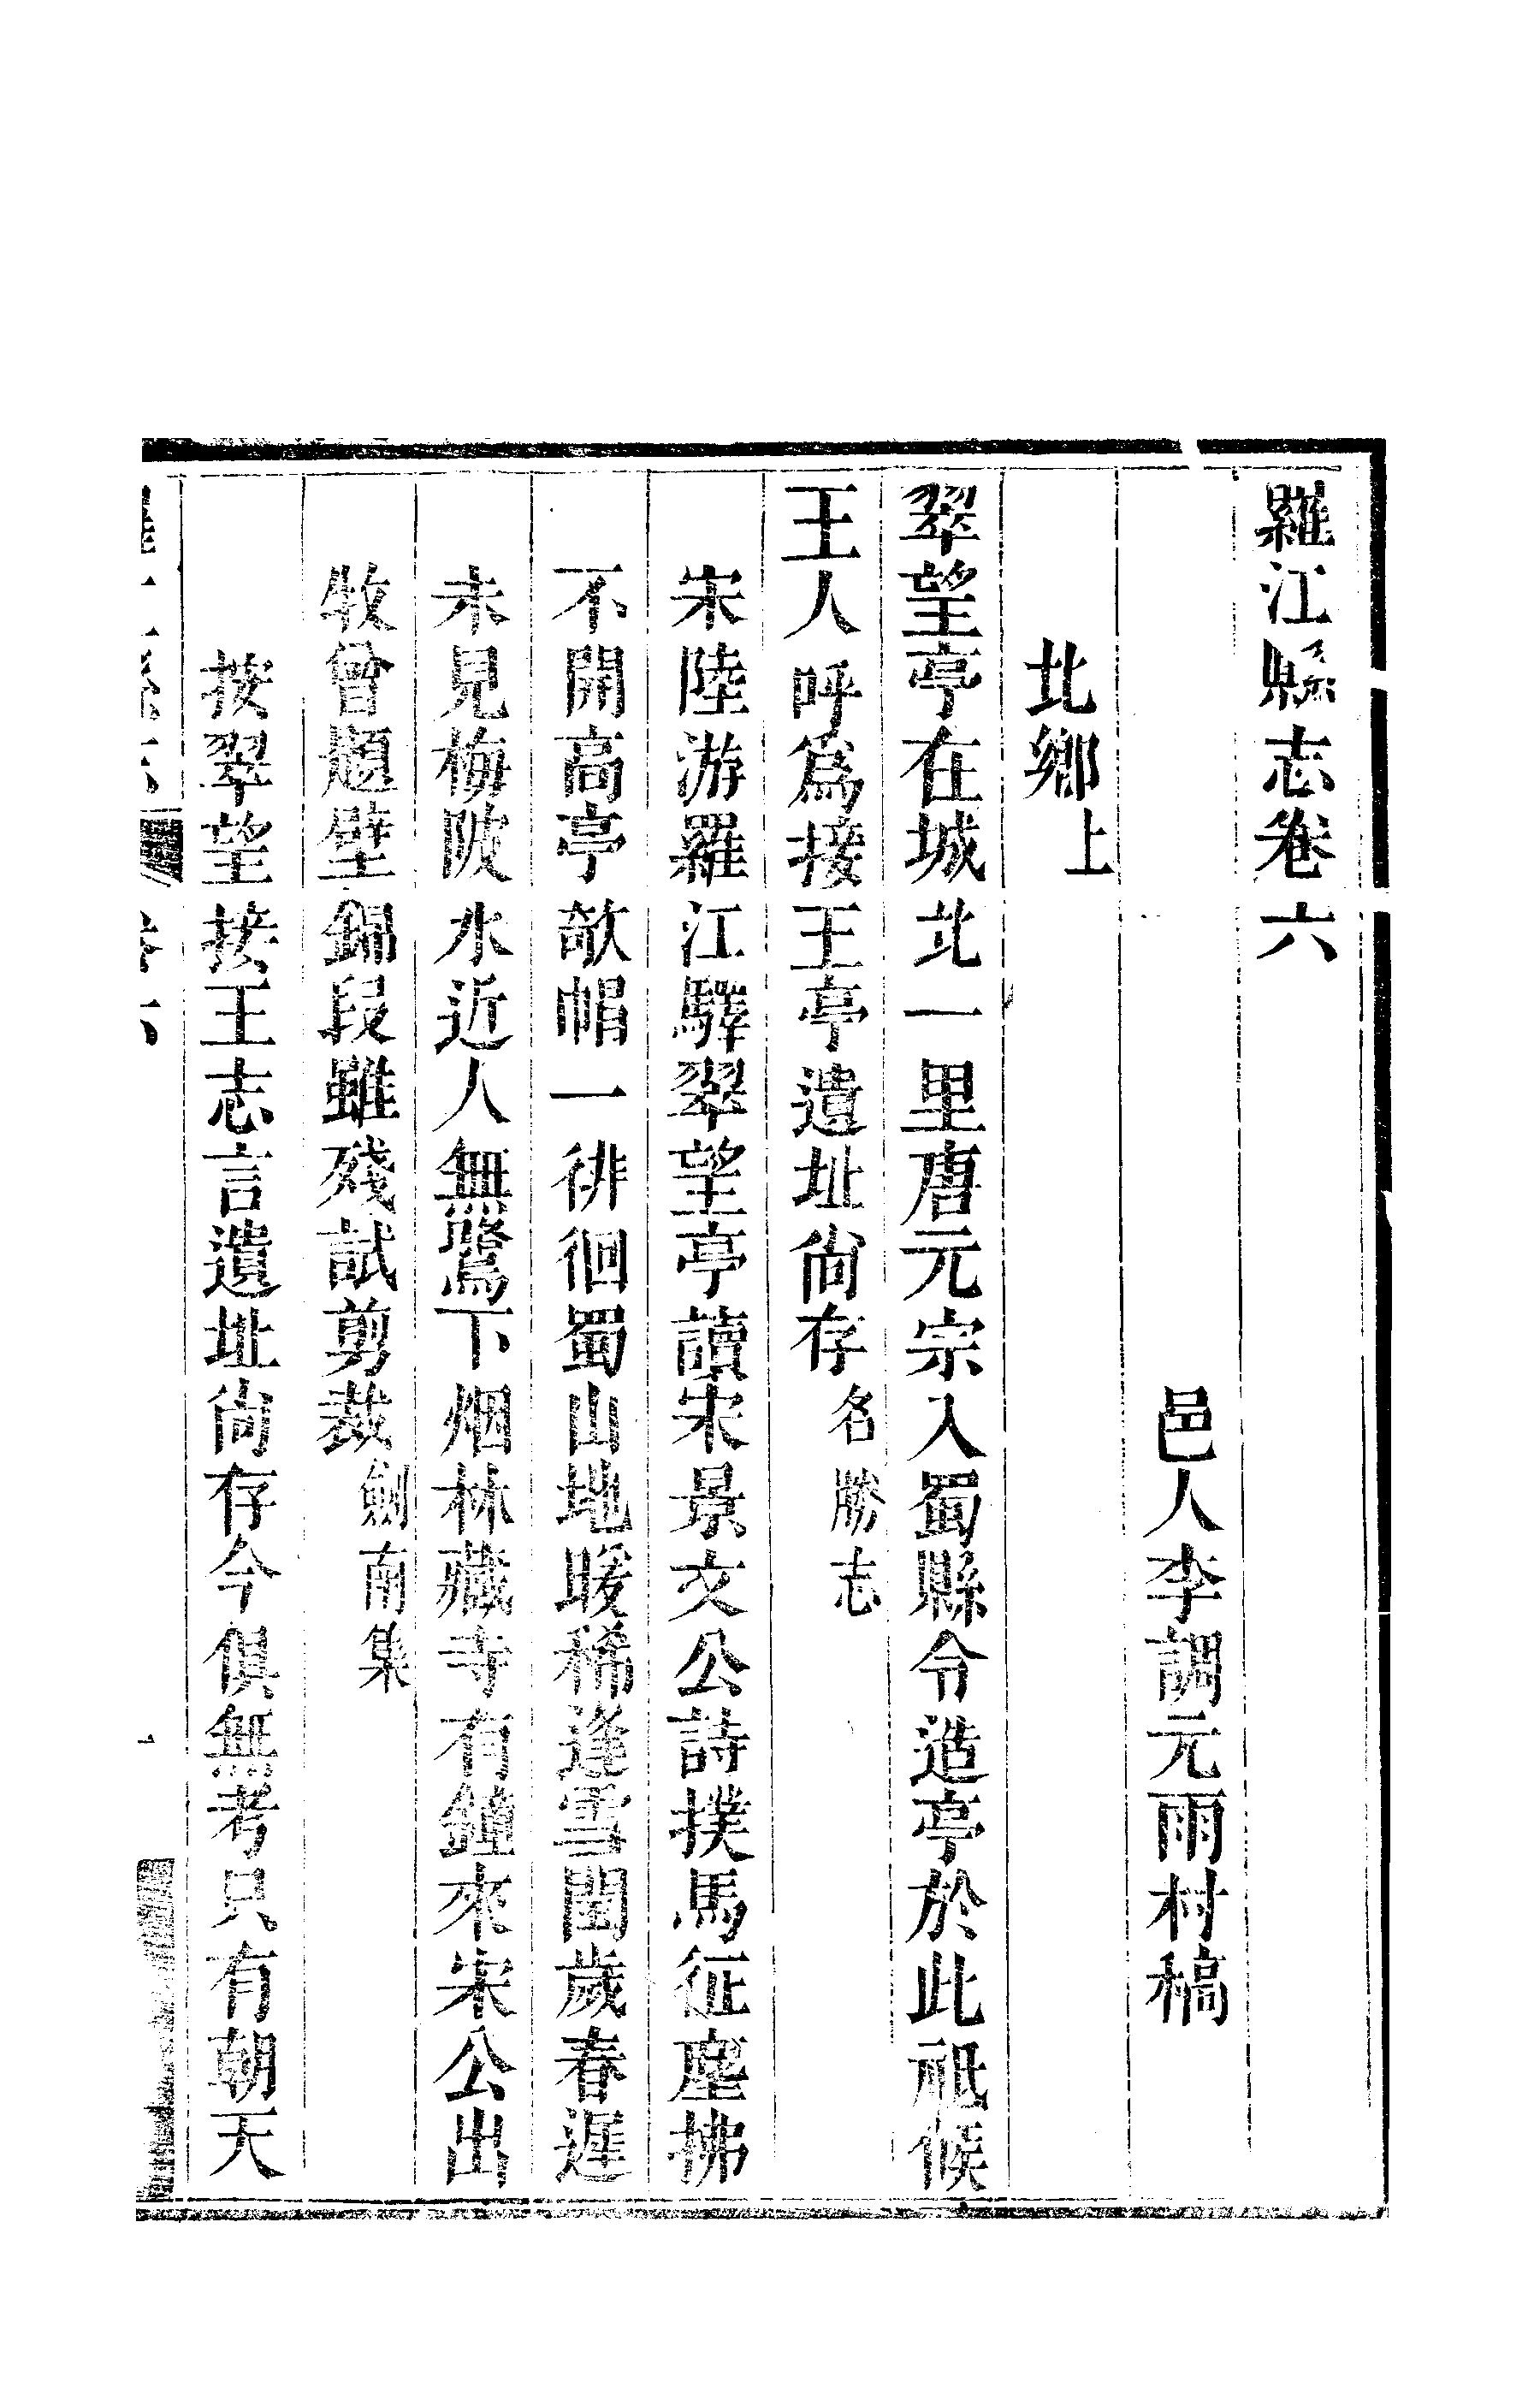 羅江縣志卷六
邑人李調元雨村稿
北鄉上
翠望亭在城北一里唐元宗入蜀縣令造亭於此祗候
王人呼爲接王亭遺址尙存名勝志
宋陸游羅江驛翠望亭讀宋景文公詩撲馬征塵拂
不開高亭欹帽一徘徊蜀山地暖稀逢雪閏歲春遲
未見梅陂水近人無鷺下烟林藏寺有鐘來宋公出
牧曾題壁錦段雖殘試剪裁劍南集
按翠望接王志言遺址尙存今俱無考只有朝天